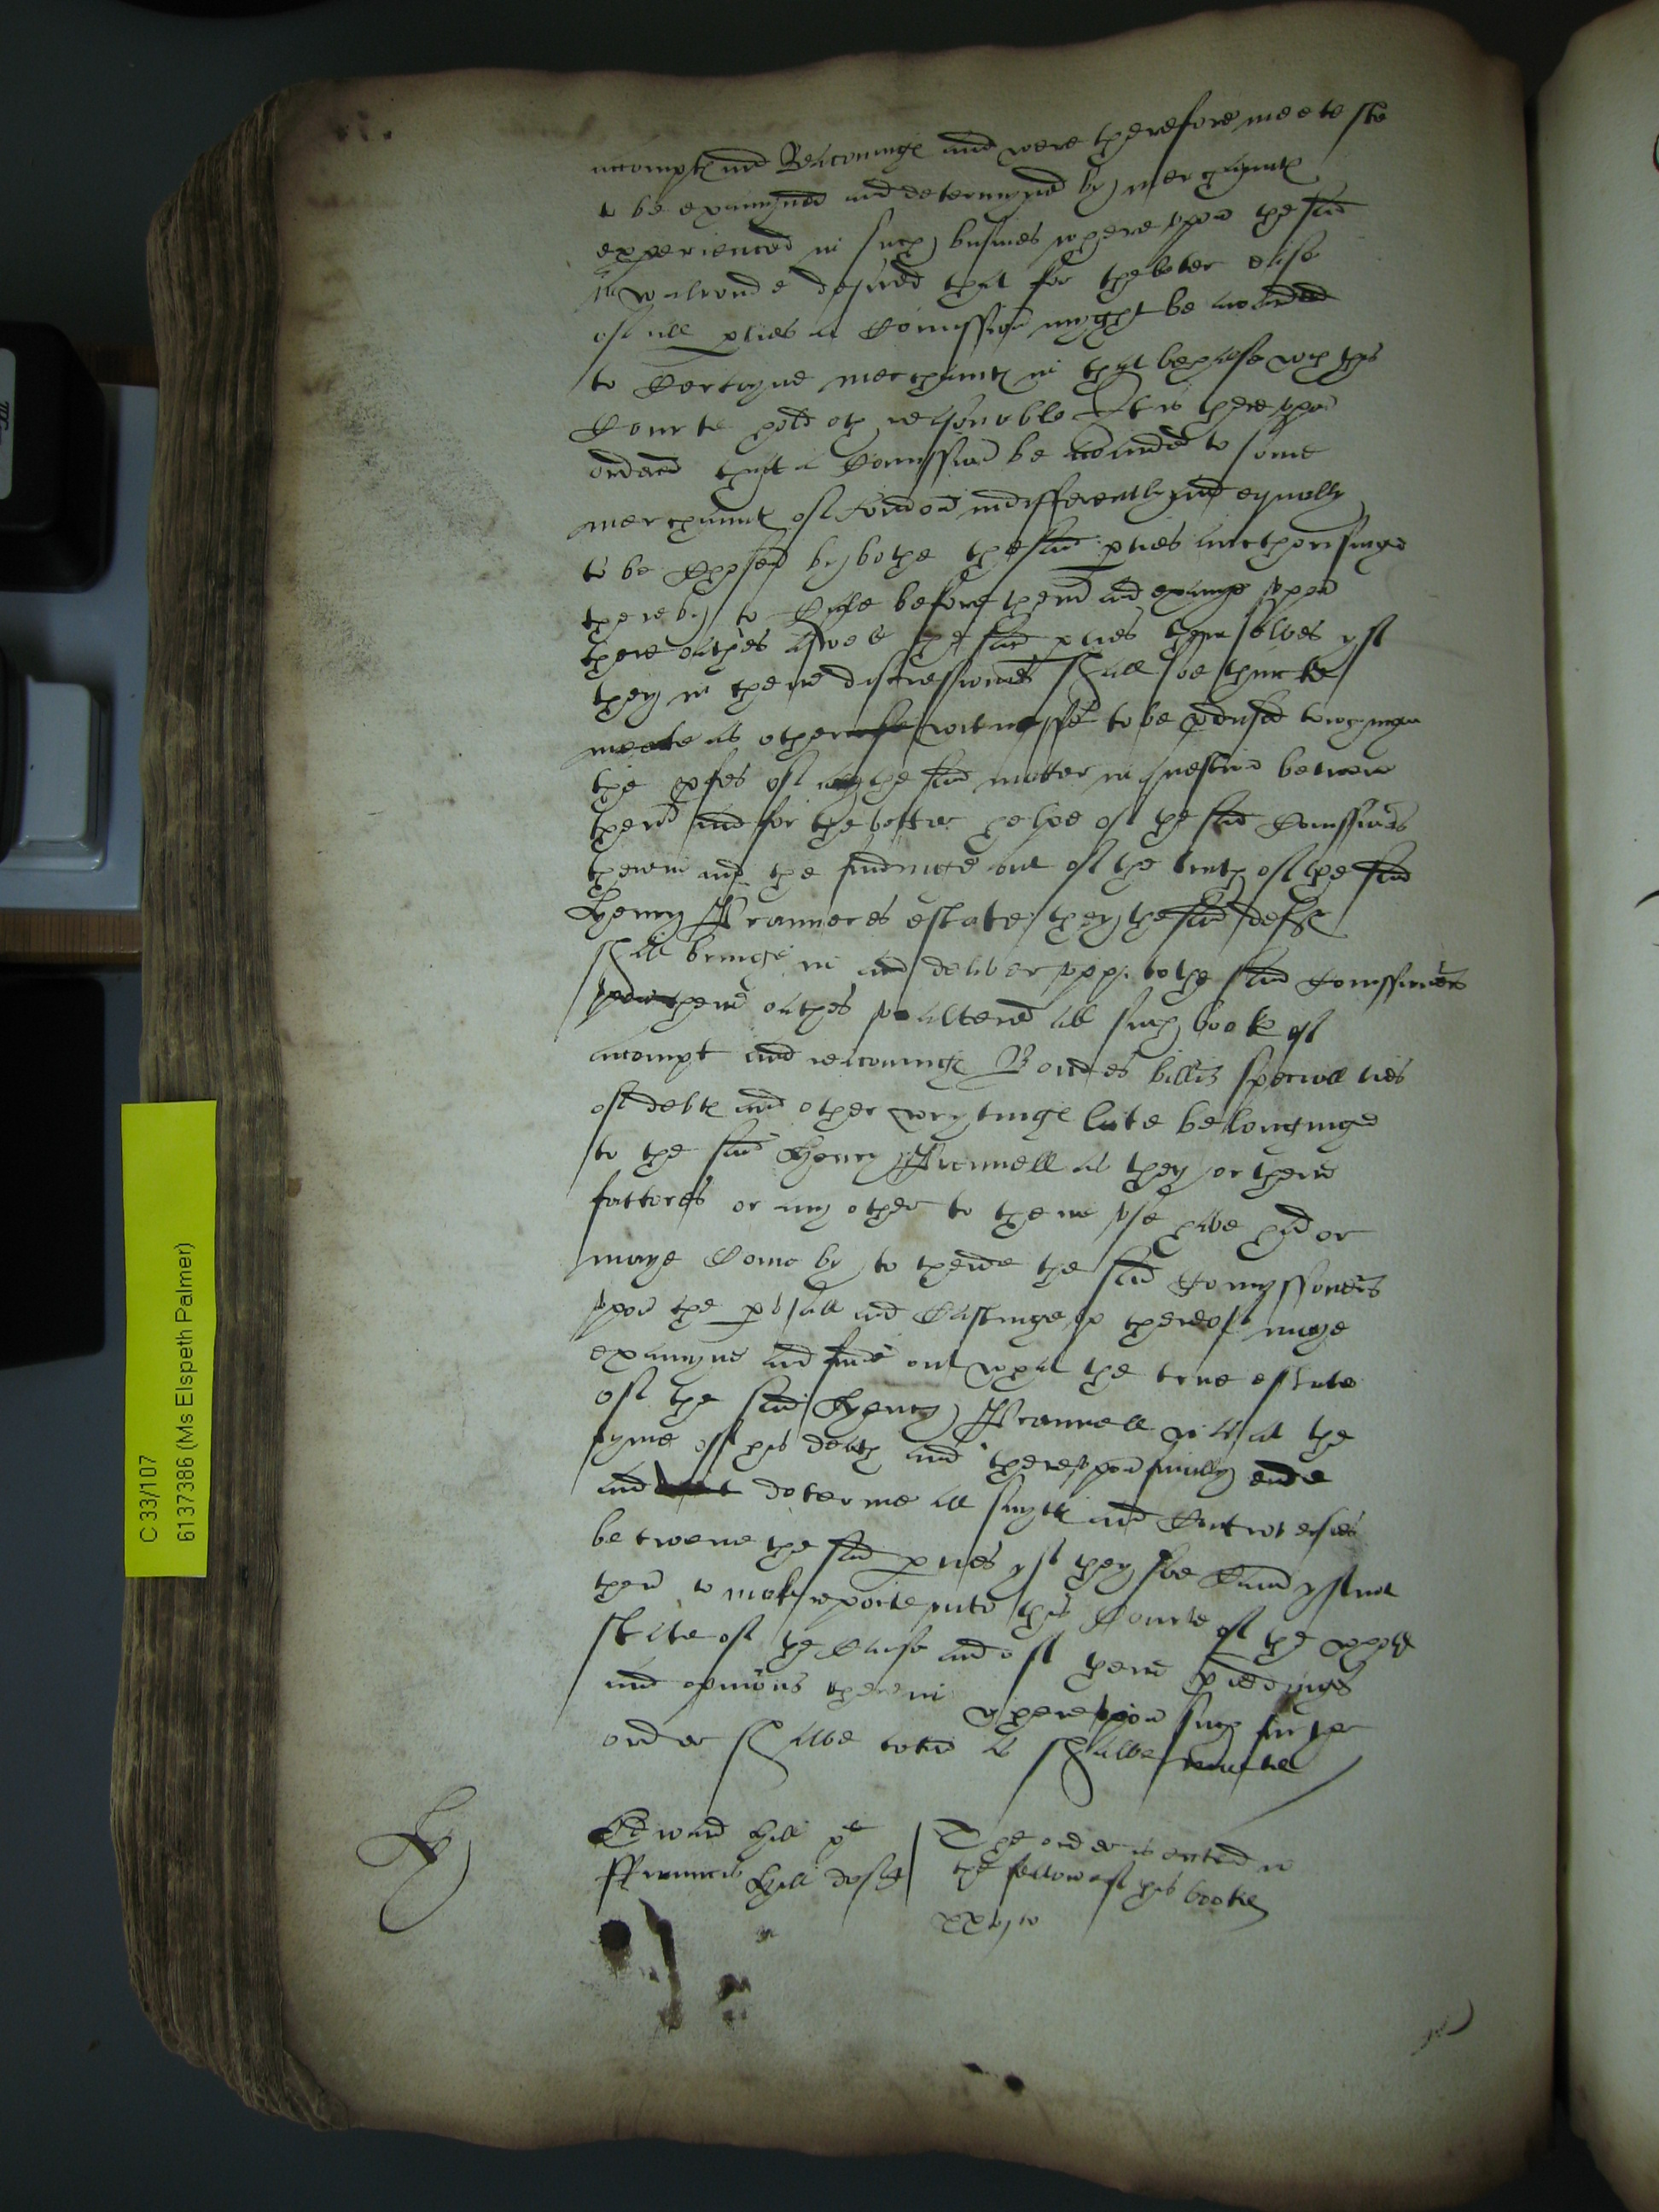 accompt and Reaconinge and were therefore meeteste
to be examyned and determyned by merchaunt
experienced in such busines whereupon the said
mr walronde desired that for the better ease
of all pties a Comission myght be awarded
to Certayne merchaunt in that behalfe wch this
Courte holdeth reasonable It is thereupon
ordered that a Comission be awarded to some
merchaunt of London indifferently and equally
to be Chosen by bothe the said pties aucthorisinge
thereby to Calle before them and examyne uppon
there oathes aswell the said pties themselves yf
they in there discressiones shall soe thincke
meete as other witnesses to be pdused towching
the of the said matter in question betwene
them and for the better helpe of the said Comissioners
therein and the findinge out of the truth of the said
Henry Prannores estate they the said deftes
shall bringe in and deliver upp to the said Comissioners
upon there oathes unaltered all such booke of
accompt and reaconinge Bondes billes specialties
of debte and other wrytinge late belonginge
to the said Henry Prannell as they or there
factores or any other to there use have had or
maye Come by to thende the said Comyssioners
upon the pusall and Castinge up thereof maye
examyne and finde out what the true estate
of the said Henry Prannell was at the
tyme of his death and thereupon finally ende
and determe all suyte and Controversies
betwene the said pties yf they soe Cann yf not
then to make reporte unto this Courte of the whole
state of the Cause and of there pcedinges
and opinions therein whereupon such further
order shalbe taken as shalbe meete
Edward Hill pl
ffrauncis Hill deft
The order is entred in
the followest of this booke
C 33/107
6137386 (Ms Elspeth Palmer)